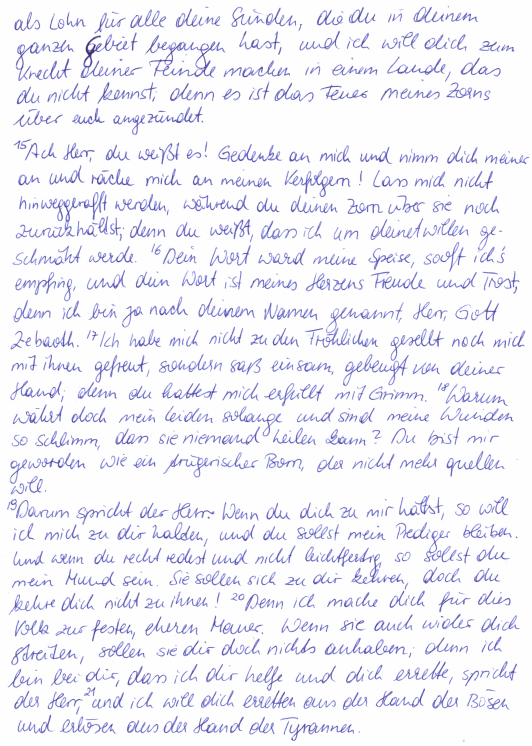 als Lohn für alle deine Sünden, die du in deinem
ganzen Gebiet begangen hast, und ich will dich zum
Knecht deiner Feinde machen in einem Lande, das
du nicht kennst; denn es ist das Feuer meines Zorns
über euch angezündet.
15 Ach Herr, du weißt es! Gedenke an mich und nimm dich meiner
an und räche mich an meinen Verfolgern! Lass mich nicht
hinweggerafft werden, während du deinen Zorn über sie noch
zurückhältst; denn du weißt, dass ich um deinetwillen ge-
schmäht werde. 16 Dein Wort ward meine Speise, sooft ich's
empfing, und dein Wort ist meines Herzens Freude und Trost;
denn ich bin ja nach deinem Namen genannt, Herr, Gott
Zebaoth. 17 Ich habe mich nicht zu den Fröhlichen gesellt noch mich
mit ihnen gefreut, sondern saß einsam, gebeugt von deiner
Hand; denn du hattest mich erfüllt mit Grimm. 18 Warum
währt doch mein leiden solange und sind meine Wunden
so schlimm, dass sie niemand heilen kann? Du bist mir
geworden wie ein trügerischer Born, der nicht mehr quellen
will.
19 Darum spricht der Herr: Wenn du dich zu mir hältst, so will
ich mich zu dir halden, und du sollst mein Prediger bleiben.
Und wenn du recht redest und nicht leichtfertig, so sollst du
mein Mund sein. Sie sollen sich zu dir kehren, doch du
kehre dich nicht zu ihnen! 20 Denn ich mache dich für dies
Volk zur festen, ehernen Mauer. Wenn sie auch wider dich
streiten, sollen sie dir doch nichts anhaben; denn ich
bin bei dir, dass ich dir helfe und dich errette, spricht
der Herr, 21 und ich will dich erretten aus der Hand der Bösen
und erlösen aus der Hand der Tyrannen.